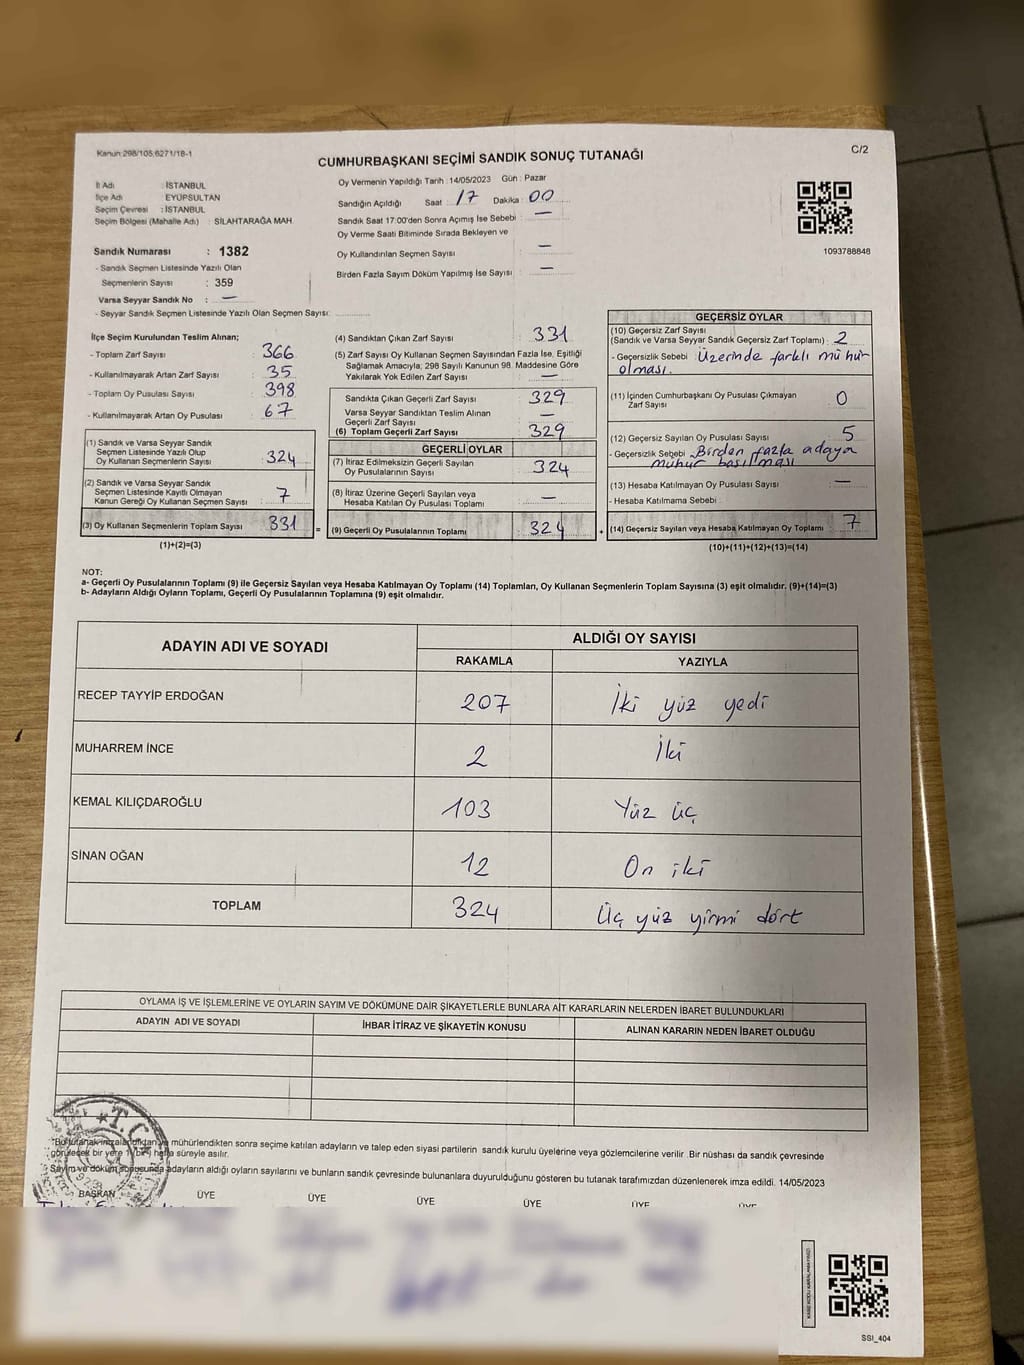 Kanun 298/105,6271/18-1
CUMHURBAŞKANI SEÇİMİ SANDIK SONUÇ TUTANAĞI
C/2
İl Adı : İSTANBUL
İlçe Adı : EYÜPSULTAN
Seçim Çevresi : İSTANBUL
Seçim Bölgesi (Mahalle Adı) : SİLAHTARAĞA MAH.
Oy Vermenin Yapıldığı Tarih : 14/05/2023 Gün : Pazar
Sandığın Açıldığı Saat : 17 Dakika : 00
Sandık Saat 17:00'den Sonra Açımış İse Sebebi : —
Oy Verme Saati Bitiminde Sırada Bekleyen ve
Oy Kullandırılan Seçmen Sayısı : —
Birden Fazla Sayım Döküm Yapılmış İse Sayısı : —
1093788848
Sandık Numarası : 1382
- Sandık Seçmen Listesinde Yazılı Olan
Seçmenlerin Sayısı : 359
Varsa Seyyar Sandık No : —
- Seyyar Sandık Seçmen Listesinde Yazılı Olan Seçmen Sayısı:
İlçe Seçim Kurulundan Teslim Alınan;
- Toplam Zarf Sayısı : 366
- Kullanılmayarak Artan Zarf Sayısı : 35
- Toplam Oy Pusulası Sayısı : 398
- Kullanılmayarak Artan Oy Pusulası : 67
(1) Sandık ve Varsa Seyyar Sandık
Seçmen Listesinde Yazılı Olup
Oy Kullanan Seçmenlerin Sayısı : 324
(2) Sandık ve Varsa Seyyar Sandık
Seçmen Listesinde Kayıtlı Olmayan
Kanun Gereği Oy Kullanan Seçmen Sayısı : 7
(3) Oy Kullanan Seçmenlerin Toplam Sayısı : 331
(1)+(2)=(3)
(4) Sandıktan Çıkan Zarf Sayısı : 331
(5) Zarf Sayısı Oy Kullanan Seçmen Sayısından Fazla İse, Eşitliği
Sağlamak Amacıyla; 298 Sayılı Kanunun 98. Maddesine Göre
Yakılarak Yok Edilen Zarf Sayısı : —
Sandıkta Çıkan Geçerli Zarf Sayısı : 329
Varsa Seyyar Sandıktan Teslim Alınan
Geçerli Zarf Sayısı : —
(6) Toplam Geçerli Zarf Sayısı : 329
GEÇERLİ OYLAR
(7) İtiraz Edilmeksizin Geçerli Sayılan
Oy Pusulalarının Sayısı : 324
(8) İtiraz Üzerine Geçerli Sayılan veya
Hesaba Katılan Oy Pusulası Toplamı : —
= (9) Geçerli Oy Pusulalarının Toplamı : 324
GEÇERSİZ OYLAR
(10) Geçersiz Zarf Sayısı
(Sandık ve Varsa Seyyar Sandık Geçersiz Zarf Toplamı) : 2
- Geçersizlik Sebebi : Üzerinde farklı mühür
olması.
(11) İçinden Cumhurbaşkanı Oy Pusulası Çıkmayan
Zarf Sayısı : 0
(12) Geçersiz Sayılan Oy Pusulası Sayısı : 5
- Geçersizlik Sebebi : Birden fazla adaya
mühür basılması
(13) Hesaba Katılmayan Oy Pusulası Sayısı : —
- Hesaba Katılmama Sebebi :
+ (14) Geçersiz Sayılan veya Hesaba Katılmayan Oy Toplamı : 7
(10)+(11)+(12)+(13)=(14)
NOT:
a- Geçerli Oy Pusulalarının Toplamı (9) ile Geçersiz Sayılan veya Hesaba Katılmayan Oy Toplamı (14) Toplamları, Oy Kullanan Seçmenlerin Toplam Sayısına (3) eşit olmalıdır. (9)+(14)=(3)
b- Adayların Aldığı Oyların Toplamı, Geçerli Oy Pusulalarının Toplamına (9) eşit olmalıdır.
ADAYIN ADI VE SOYADI
ALDIĞI OY SAYISI
RAKAMLA YAZIYLA
RECEP TAYYİP ERDOĞAN 207 İki yüz yedi
MUHARREM İNCE 2 İki
KEMAL KILIÇDAROĞLU 103 Yüz üç
SİNAN OĞAN 12 On iki
TOPLAM 324 Üç yüz yirmi dört
OYLAMA İŞ VE İŞLEMLERİNE VE OYLARIN SAYIM VE DÖKÜMÜNE DAİR ŞİKAYETLERLE BUNLARA AİT KARARLARIN NELERDEN İBARET BULUNDUKLARI
ADAYIN ADI VE SOYADI İHBAR İTİRAZ VE ŞİKAYETİN KONUSU ALINAN KARARIN NEDEN İBARET OLDUĞU
T.C.
*Bu tutanak imzalandıktan ve mühürlendikten sonra seçime katılan adayların ve talep eden siyasi partilerin sandık kurulu üyelerine veya gözlemcilerine verilir. Bir nüshası da sandık çevresinde
görülecek bir yere 1 (bir) hafta süreyle asılır.
Sayım ve döküm sonucunda adayların aldığı oyların sayılarını ve bunların sandık çevresinde bulunanlara duyurulduğunu gösteren bu tutanak tarafımızdan düzenlenerek imza edildi. 14/05/2023
BAŞKAN ÜYE ÜYE ÜYE ÜYE ÜYE ÜYE
SSI_404